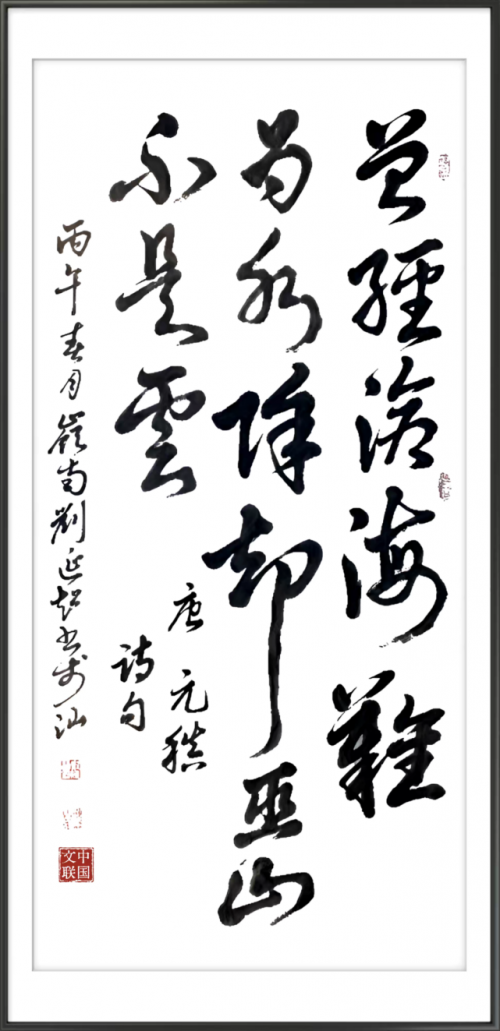 曾經滄海難
為水除却巫山
不是雲
唐 元稹
詩句
丙午春月嶺南劉延超書於汕
中国文联